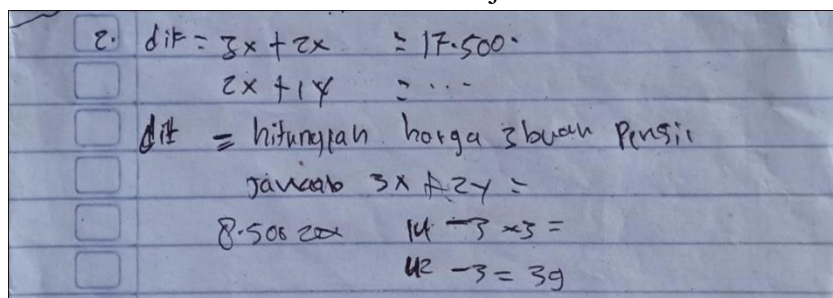 2. dit = 3x + 2x = 17.500.
2x + 1y = ...
dit = hitunglah horga 3 buah Pensil
Jawaab 3x + 2y =
8.500 14 - 3 x 3 =
42 - 3 = 39